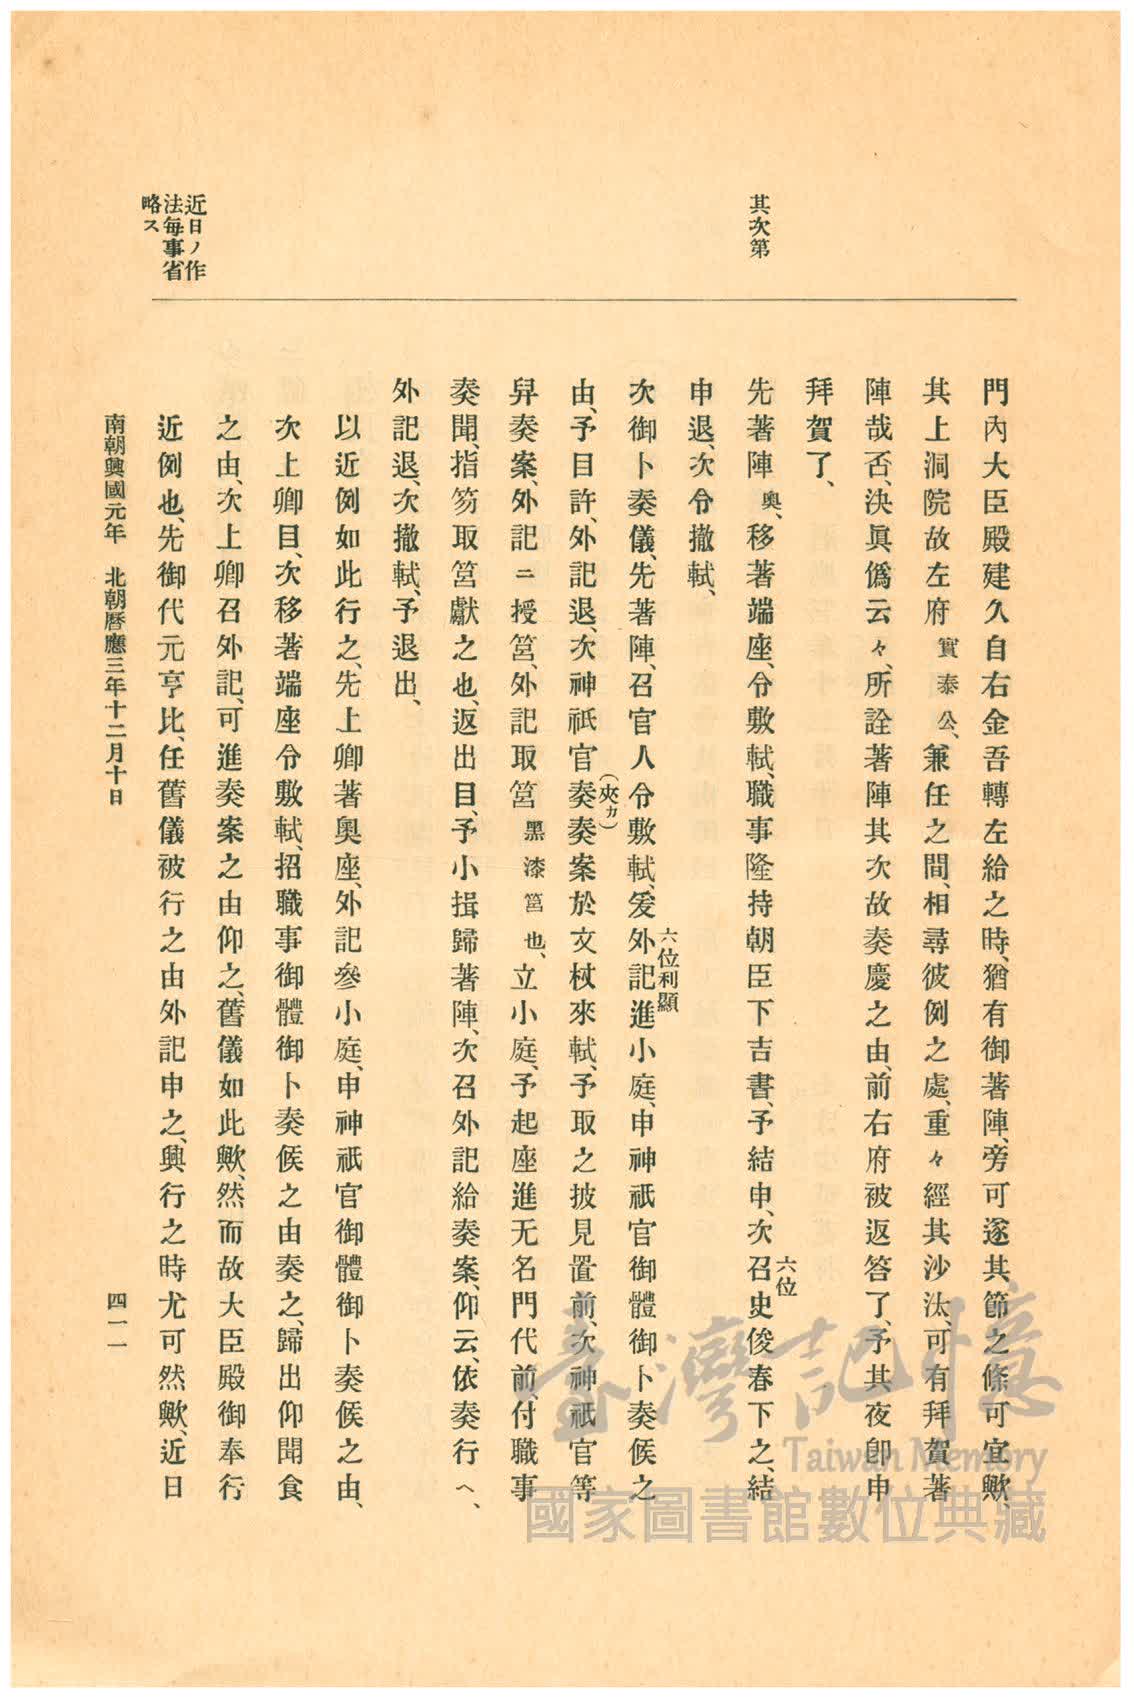 其次第
近日ノ作
法每事省
略ス
門內大臣殿建久自右金吾轉左給之時、猶有御著陣、旁可遂其節之條可宜歟、
其上洞院故左府實泰公、兼任之間、相尋彼例之處、重々經其沙汰、可有拜賀著
陣哉否、決眞僞云々、所詮著陣其次故奏慶之由、前右府被返答了、予其夜卽申
拜賀了、
先著陣奧、移著端座、令敷軾、職事隆持朝臣下吉書、予結申、次召史俊春下之、結
六位
申退、次令撤軾、
次御卜奏儀、先著陣、召官人令敷軾、爰外記進小庭、申神祇官御體御卜奏候之
六位利顯
由、予目許、外記退、次神祇官奏奏案於文杖來軾、予取之披見置前、次神祇官等
(夾カ)
舁奏案、外記ニ授筥、外記取筥黑漆筥也、立小庭、予起座進无名門代前、付職事
奏聞、指笏取筥獻之也、返出目、予小揖歸著陣、次召外記給奏案、仰云、依奏行へ、
外記退、次撤軾、予退出、
以近例如此行之、先上卿著奧座、外記參小庭、申神祇官御體御卜奏候之由、
次上卿目、次移著端座令敷軾、招職事御體御卜奏候之由奏之、歸出仰聞食
之由、次上卿召外記、可進奏案之由仰之、舊儀如此歟、然而故大臣殿御奉行
近例也、先御代元亨比、任舊儀被行之由外記申之、興行之時尤可然歟、近日
南朝興國元年 北朝曆應三年十二月十日
四一一
臺灣記憶
Taiwan Memory
國家圖書館數位典藏